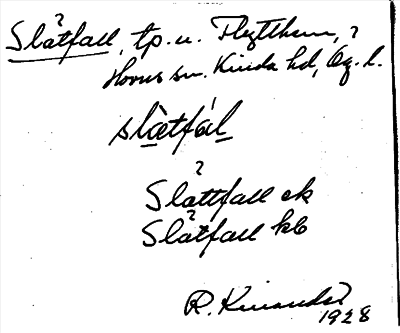 ?
Slåtfall, tp. u. Flytthem, ?
Horns sn. Kinda hd, Ög. l.
slàtfál
?
Slåttfall ek
?
Slåtfall kb
R. Kinander
1928